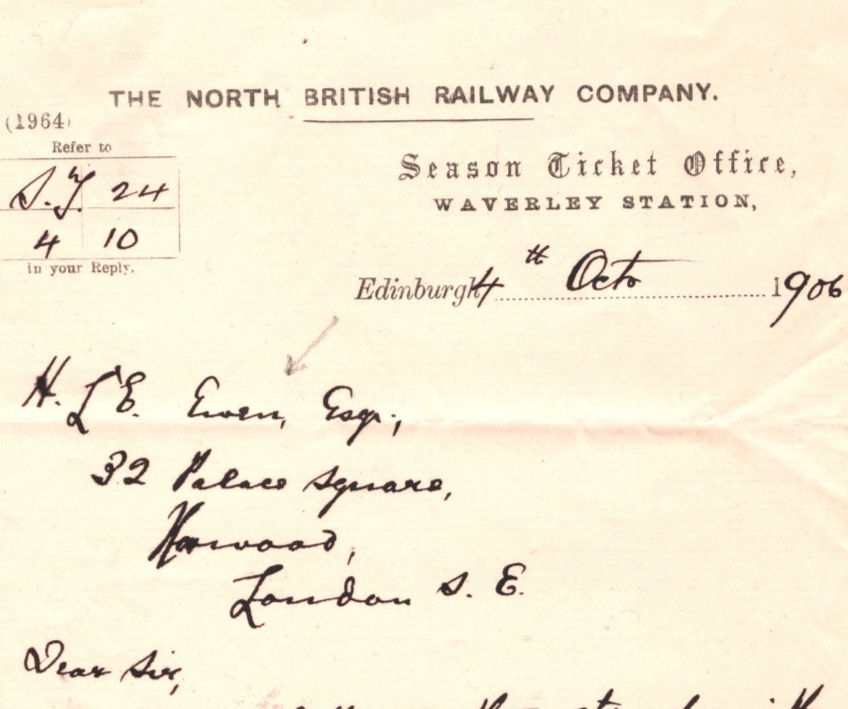 THE NORTH BRITISH RAILWAY COMPANY.
(1964)
Refer to
Season Ticket Office,
S.T. 24
WAVERLEY STATION,
4 10
in your Reply.
Edinburgh 4th Octo 1906
H. L'E. Ewen, Esqr.,
32 Palace Square,
Norwood,
London S. E.
Dear Sir,